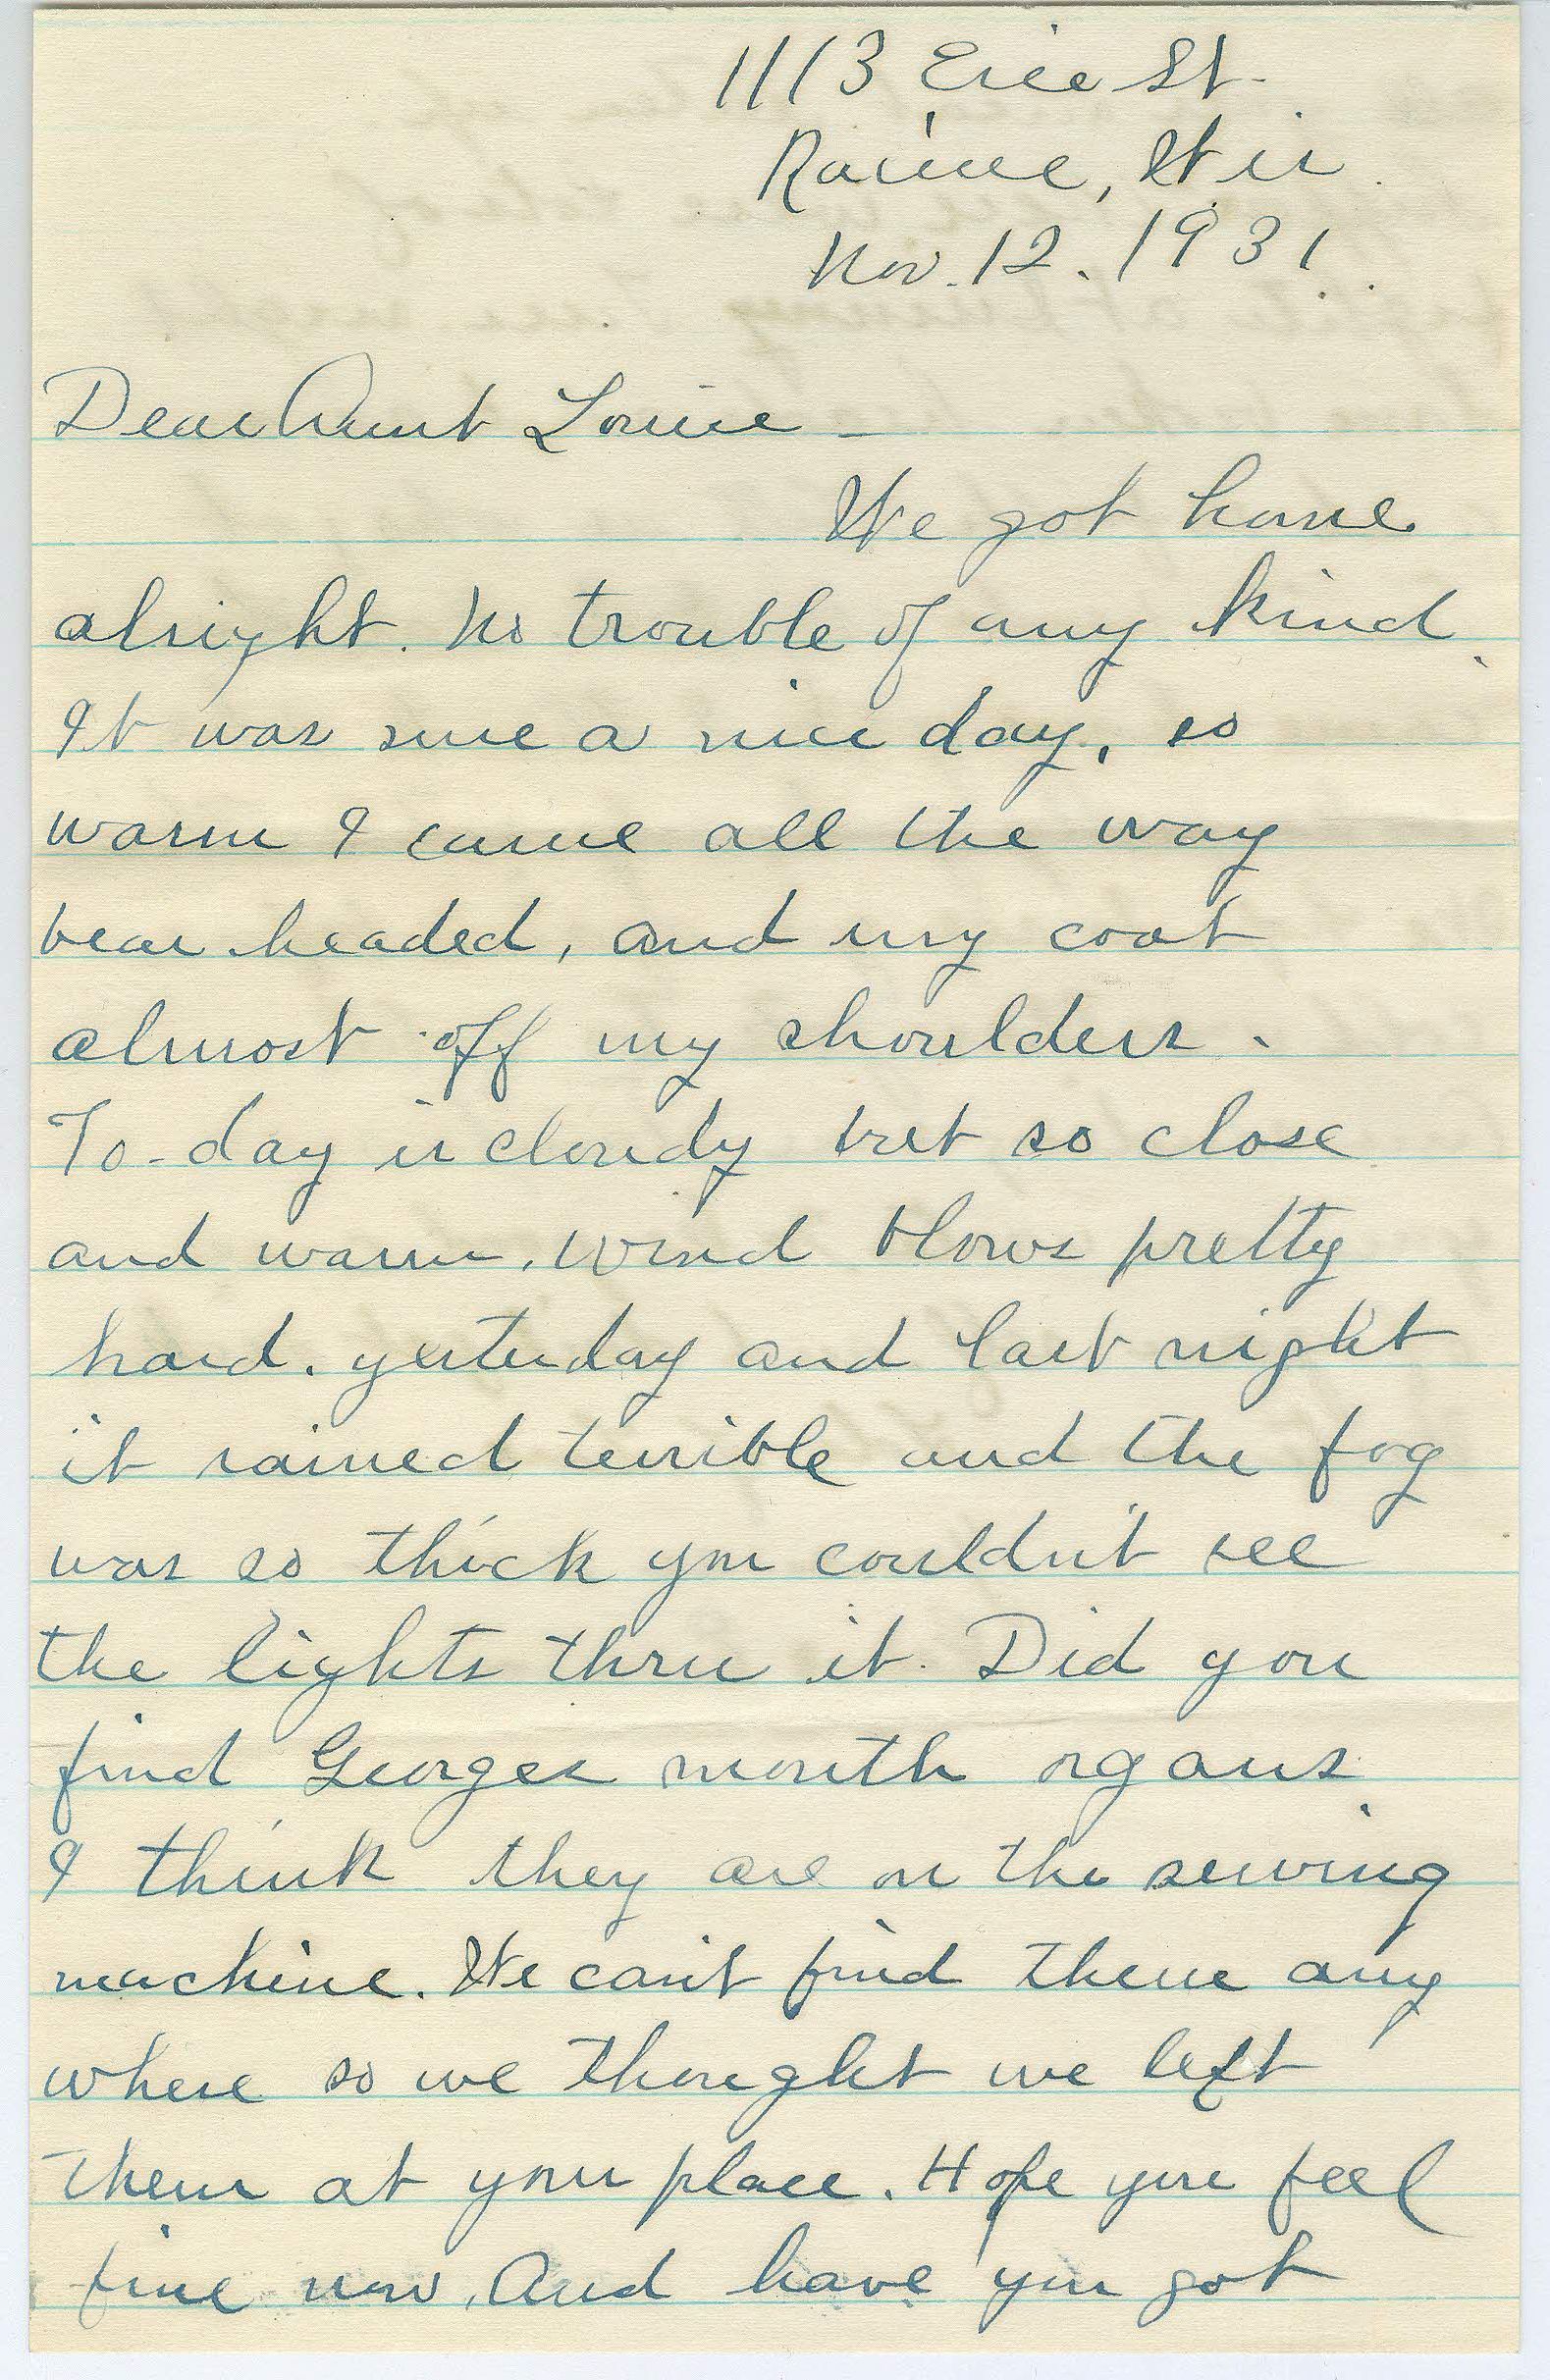 1113 Erie St.
Racine, Wis.
Nov. 12. 1931.
Dear Aunt Louise -
We got home
alright. No trouble of any kind.
It was sure a nice day, so
warm I came all the way
bear headed, and my coat
almost off my shoulders.
To-day is cloudy but so close
and warm. Wind blows pretty
hard. yesterday and last night
it rained terrible and the fog
was so thick you couldn't see
the lights thru it. Did you
find Georges mouth organs
I think they are on the sewing
machine. We can't find them any
where so we thought we left
them at your place. Hope you feel
fine now. And have you got